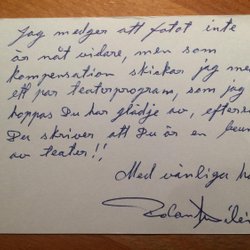 Jag medger att fotot inte
är nåt vidare, men som
kompensation skickar jag med
ett par teaterprogram, som jag
hoppas Du har glädje av, efters
Du skriver att Du är en beun
av teater!!
Med vänliga hä